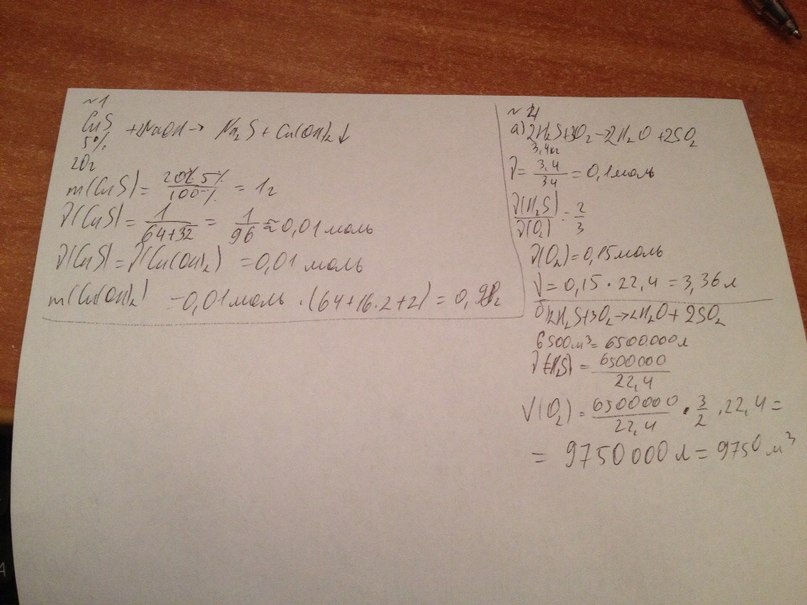 ~1
CuS + 2NaOH → Na₂S + Cu(OH)₂↓
5%
20г
m(CuS) = 20·5%/100% = 1г
ν(CuS) = 1/64+32 = 1/96 ≈ 0,01 моль
ν(CuS) = ν(Cu(OH)₂) = 0,01 моль
m(Cu(OH)₂) = 0,01 моль · (64+16·2+2) = 0,98г
~4
а) 2H₂S+3O₂→2H₂O+2SO₂
ν = 3,4/34 = 0,1 моль
ν(H₂S)/ν(O₂) = 2/3
ν(O₂) = 0,15 моль
V = 0,15 · 22,4 = 3,36 л
б) 2H₂S+3O₂→2H₂O+2SO₂
6500 м³ = 6500000 л
ν(H₂S) = 6500000/22,4
V(O₂) = 6500000/22,4 · 3/2 · 22,4 =
= 9750000 л = 9750 м³